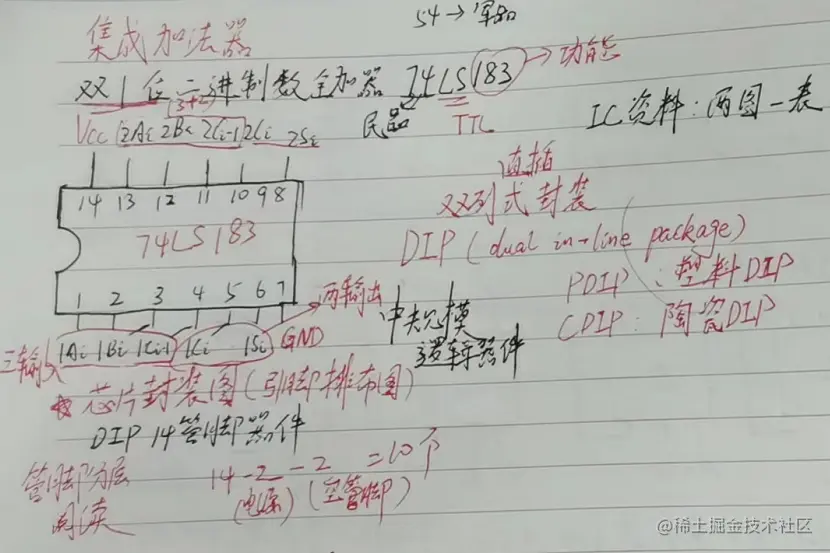 54→军品
集成加法器
双1位二进制数全加器 74LS183→功能
(3+2)
民品 TTL
IC资料:两图一表
Vcc 2Ai 2Bi 2Ci-1 2Ci 2Si
14 13 12 11 10 9 8
74LS183
1 2 3 4 5 6 7
直插
双列式封装
DIP (dual in-line package)
PDIP:塑料DIP
CDIP:陶瓷DIP
两输出
中规模
逻辑器件
三输入 1Ai 1Bi 1Ci-1 1Ci 1Si GND
芯片封装图(引脚排布图)
DIP 14管脚器件
管脚分层
阅读
14-2-2=10个
(电源) (空管脚)
@稀土掘金技术社区